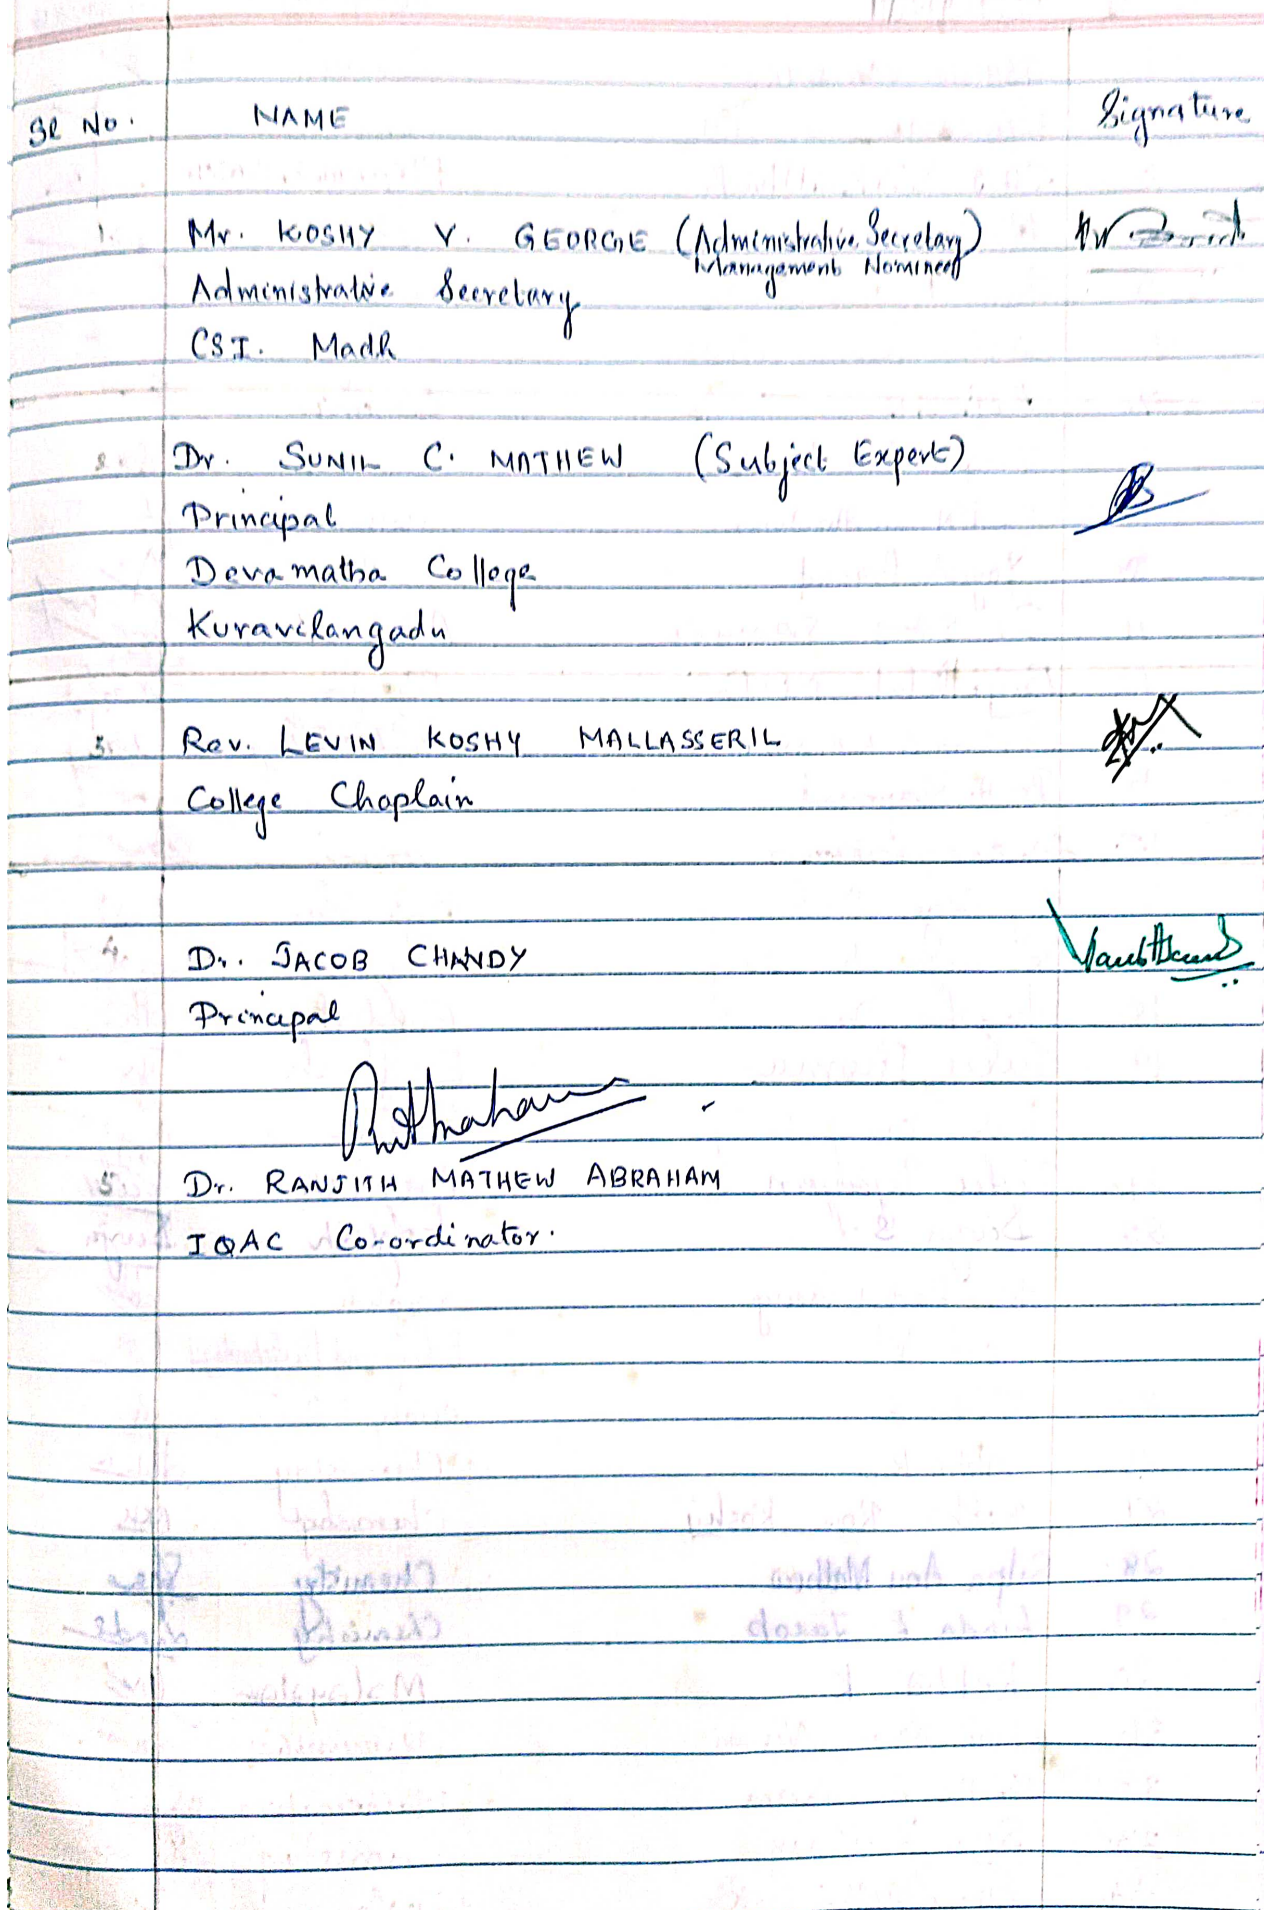 Sl No. NAME Signature
1. Mr. KOSHY V. GEORGE (Administrative Secretary)
Management Nominee)
Administrative Secretary
CSI. Madh
2. Dr. SUNIL C. MATHEW (Subject Expert)
Principal
Devamatha College
Kuravilangadu
3. Rev. LEVIN KOSHY MALLASSERIL
College Chaplain
4. Dr. JACOB CHANDY
Principal
5. Dr. RANJITH MATHEW ABRAHAM
IQAC Co-ordinator.